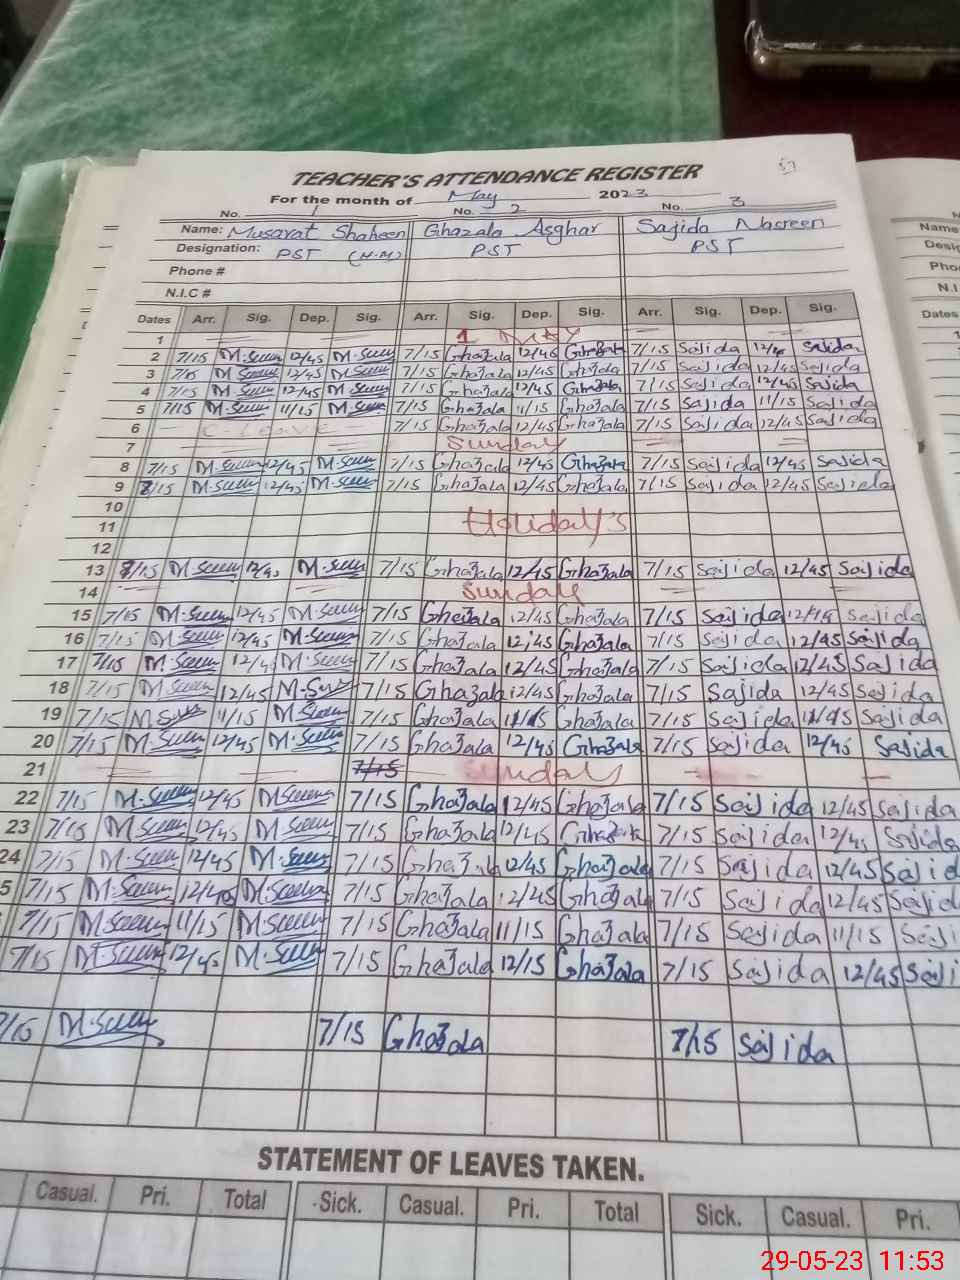 57
TEACHER'S ATTENDANCE REGISTER
For the month of May 2023
No. 1 No. 2 No. 3
Name: Musarat Shaheen Ghazala Asghar Sajida Nasreen
Designation: PST (H.M) PST PST
Phone #
N.I.C #
Dates Arr. Sig. Dep. Sig. Arr. Sig. Dep. Sig. Arr. Sig. Dep. Sig.
1 1 May
2 7/15 12/45 7/15 Ghazala 12/45 Ghazala 7/15 Sajida 12/45 Sajida
3 7/15 12/45 7/15 Ghazala 12/45 Ghazala 7/15 Sajida 12/45 Sajida
4 7/15 12/45 7/15 Ghazala 12/45 Ghazala 7/15 Sajida 12/45 Sajida
5 7/15 11/15 7/15 Ghazala 11/15 Ghazala 7/15 Sajida 11/15 Sajida
6 C. Leave 7/15 Ghazala 12/45 Ghazala 7/15 Sajida 12/45 Sajida
7 Sunday
8 7/15 12/45 7/15 Ghazala 12/45 Ghazala 7/15 Sajida 12/45 Sajida
9 12/45 7/15 Ghazala 12/45 Ghazala 7/15 Sajida 12/45 Sajida
10
11 Holiday's
12
13 12/45 7/15 Ghazala 12/45 Ghazala 7/15 Sajida 12/45 Sajida
14 Sunday
15 7/15 12/45 7/15 Ghazala 12/45 Ghazala 7/15 Sajida 12/45 Sajida
16 7/15 12/45 7/15 Ghazala 12/45 Ghazala 7/15 Sajida 12/45 Sajida
17 7/15 12/45 7/15 Ghazala 12/45 Ghazala 7/15 Sajida 12/45 Sajida
18 7/15 12/45 7/15 Ghazala 12/45 Ghazala 7/15 Sajida 12/45 Sajida
19 7/15 11/15 7/15 Ghazala 11/15 Ghazala 7/15 Sajida 11/15 Sajida
20 7/15 12/45 7/15 Ghazala 12/45 Ghazala 7/15 Sajida 12/45 Sajida
21 7/15 Sunday
22 7/15 12/45 7/15 Ghazala 12/45 Ghazala 7/15 Sajida 12/45 Sajida
23 7/15 12/45 7/15 Ghazala 12/45 Ghazala 7/15 Sajida 12/45 Sajida
24 7/15 12/45 7/15 Ghazala 12/45 Ghazala 7/15 Sajida 12/45 Sajid
5 7/15 12/45 7/15 Ghazala 12/45 Ghazala 7/15 Sajida 12/45 Sajid
7/15 11/15 7/15 Ghazala 11/15 Ghazala 7/15 Sajida 11/15 Saji
7/15 12/45 7/15 Ghazala 12/15 Ghazala 7/15 Sajida 12/45 Saji
7/15 7/15 Ghazala 7/15 Sajida
STATEMENT OF LEAVES TAKEN.
Casual. Pri. Total Sick. Casual. Pri. Total Sick. Casual. Pri.
29-05-23 11:53
Name
Desig
Pho
N.I.
Dates